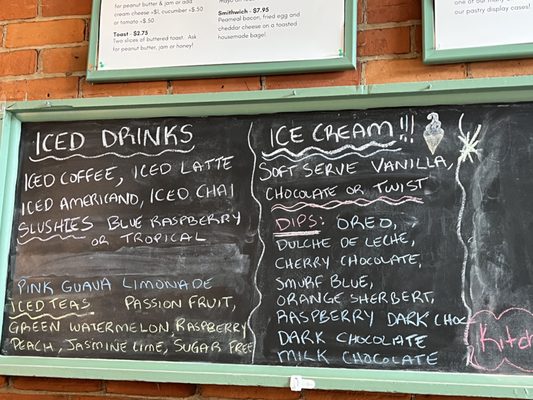 peanut butter & jam or add
cream cheese +$1, cucumber +$.50
or tomato +$.50
Toast - $2.75
Two slices of buttered toast. Ask
for peanut butter, jam or honey!
Smithwich - $7.95
Peameal bacon, fried egg and
cheddar cheese on a toasted
housemade bagel!
our pastry display cases
ICED DRINKS
ICED COFFEE, ICED LATTE
ICED AMERICANO, ICED CHAI
SLUSHIES BLUE RASPBERRY
OR TROPICAL
PINK GUAVA LIMONADE
ICED TEAS PASSION FRUIT,
GREEN WATERMELON, RASPBERRY
PEACH, JASMINE LIME, SUGAR FREE
ICE CREAM!!!
SOFT SERVE VANILLA,
CHOCOLATE OR TWIST
DIPS: OREO,
DULCHE DE LECHE,
CHERRY CHOCOLATE,
SMURF BLUE,
ORANGE SHERBERT,
RASPBERRY DARK CHOC
DARK CHOCOLATE
MILK CHOCOLATE
Kitch